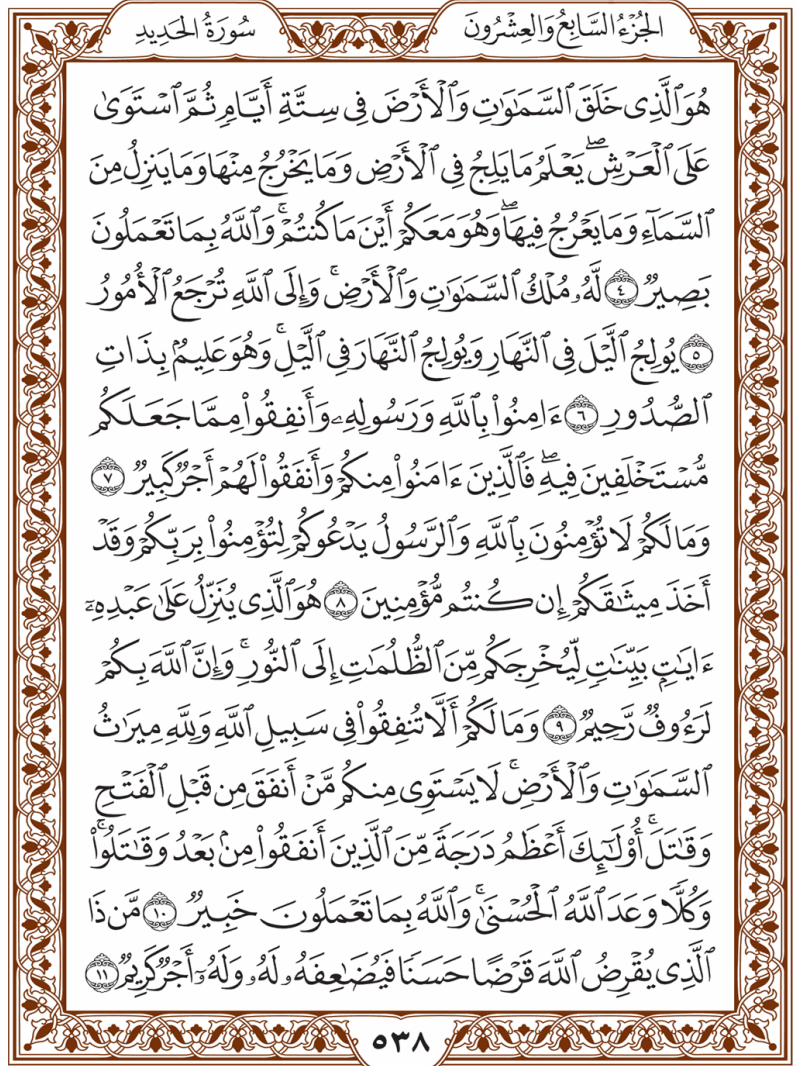 الجُزْءُ السَّابِعُ وَالعِشْرُونَ
سُورَةُ الحَدِيدِ
هُوَ ٱلَّذِى خَلَقَ ٱلسَّمَٰوَٰتِ وَٱلْأَرْضَ فِى سِتَّةِ أَيَّامٍ ثُمَّ ٱسْتَوَىٰ
عَلَى ٱلْعَرْشِ ۖ يَعْلَمُ مَا يَلِجُ فِى ٱلْأَرْضِ وَمَا يَخْرُجُ مِنْهَا وَمَا يَنزِلُ مِنَ
ٱلسَّمَآءِ وَمَا يَعْرُجُ فِيهَا ۖ وَهُوَ مَعَكُمْ أَيْنَ مَا كُنتُمْ ۚ وَٱللَّهُ بِمَا تَعْمَلُونَ
بَصِيرٌ ٤ لَّهُۥ مُلْكُ ٱلسَّمَٰوَٰتِ وَٱلْأَرْضِ ۚ وَإِلَى ٱللَّهِ تُرْجَعُ ٱلْأُمُورُ
٥ يُولِجُ ٱلَّيْلَ فِى ٱلنَّهَارِ وَيُولِجُ ٱلنَّهَارَ فِى ٱلَّيْلِ ۚ وَهُوَ عَلِيمٌۢ بِذَاتِ
ٱلصُّدُورِ ٦ ءَامِنُوا۟ بِٱللَّهِ وَرَسُولِهِۦ وَأَنفِقُوا۟ مِمَّا جَعَلَكُم
مُّسْتَخْلَفِينَ فِيهِ ۖ فَٱلَّذِينَ ءَامَنُوا۟ مِنكُمْ وَأَنفَقُوا۟ لَهُمْ أَجْرٌ كَبِيرٌ ٧
وَمَا لَكُمْ لَا تُؤْمِنُونَ بِٱللَّهِ وَٱلرَّسُولُ يَدْعُوكُمْ لِتُؤْمِنُوا۟ بِرَبِّكُمْ وَقَدْ
أَخَذَ مِيثَٰقَكُمْ إِن كُنتُم مُّؤْمِنِينَ ٨ هُوَ ٱلَّذِى يُنَزِّلُ عَلَىٰ عَبْدِهِۦٓ
ءَايَٰتٍۭ بَيِّنَٰتٍ لِّيُخْرِجَكُم مِّنَ ٱلظُّلُمَٰتِ إِلَى ٱلنُّورِ ۚ وَإِنَّ ٱللَّهَ بِكُمْ
لَرَءُوفٌ رَّحِيمٌ ٩ وَمَا لَكُمْ أَلَّا تُنفِقُوا۟ فِى سَبِيلِ ٱللَّهِ وَلِلَّهِ مِيرَٰثُ
ٱلسَّمَٰوَٰتِ وَٱلْأَرْضِ ۚ لَا يَسْتَوِى مِنكُم مَّنْ أَنفَقَ مِن قَبْلِ ٱلْفَتْحِ
وَقَٰتَلَ ۚ أُو۟لَٰٓئِكَ أَعْظَمُ دَرَجَةً مِّنَ ٱلَّذِينَ أَنفَقُوا۟ مِنۢ بَعْدُ وَقَٰتَلُوا۟ ۚ
وَكُلًّا وَعَدَ ٱللَّهُ ٱلْحُسْنَىٰ ۚ وَٱللَّهُ بِمَا تَعْمَلُونَ خَبِيرٌ ١٠ مَّن ذَا
ٱلَّذِى يُقْرِضُ ٱللَّهَ قَرْضًا حَسَنًا فَيُضَٰعِفَهُۥ لَهُۥ وَلَهُۥٓ أَجْرٌ كَرِيمٌ ١١
٥٣٨